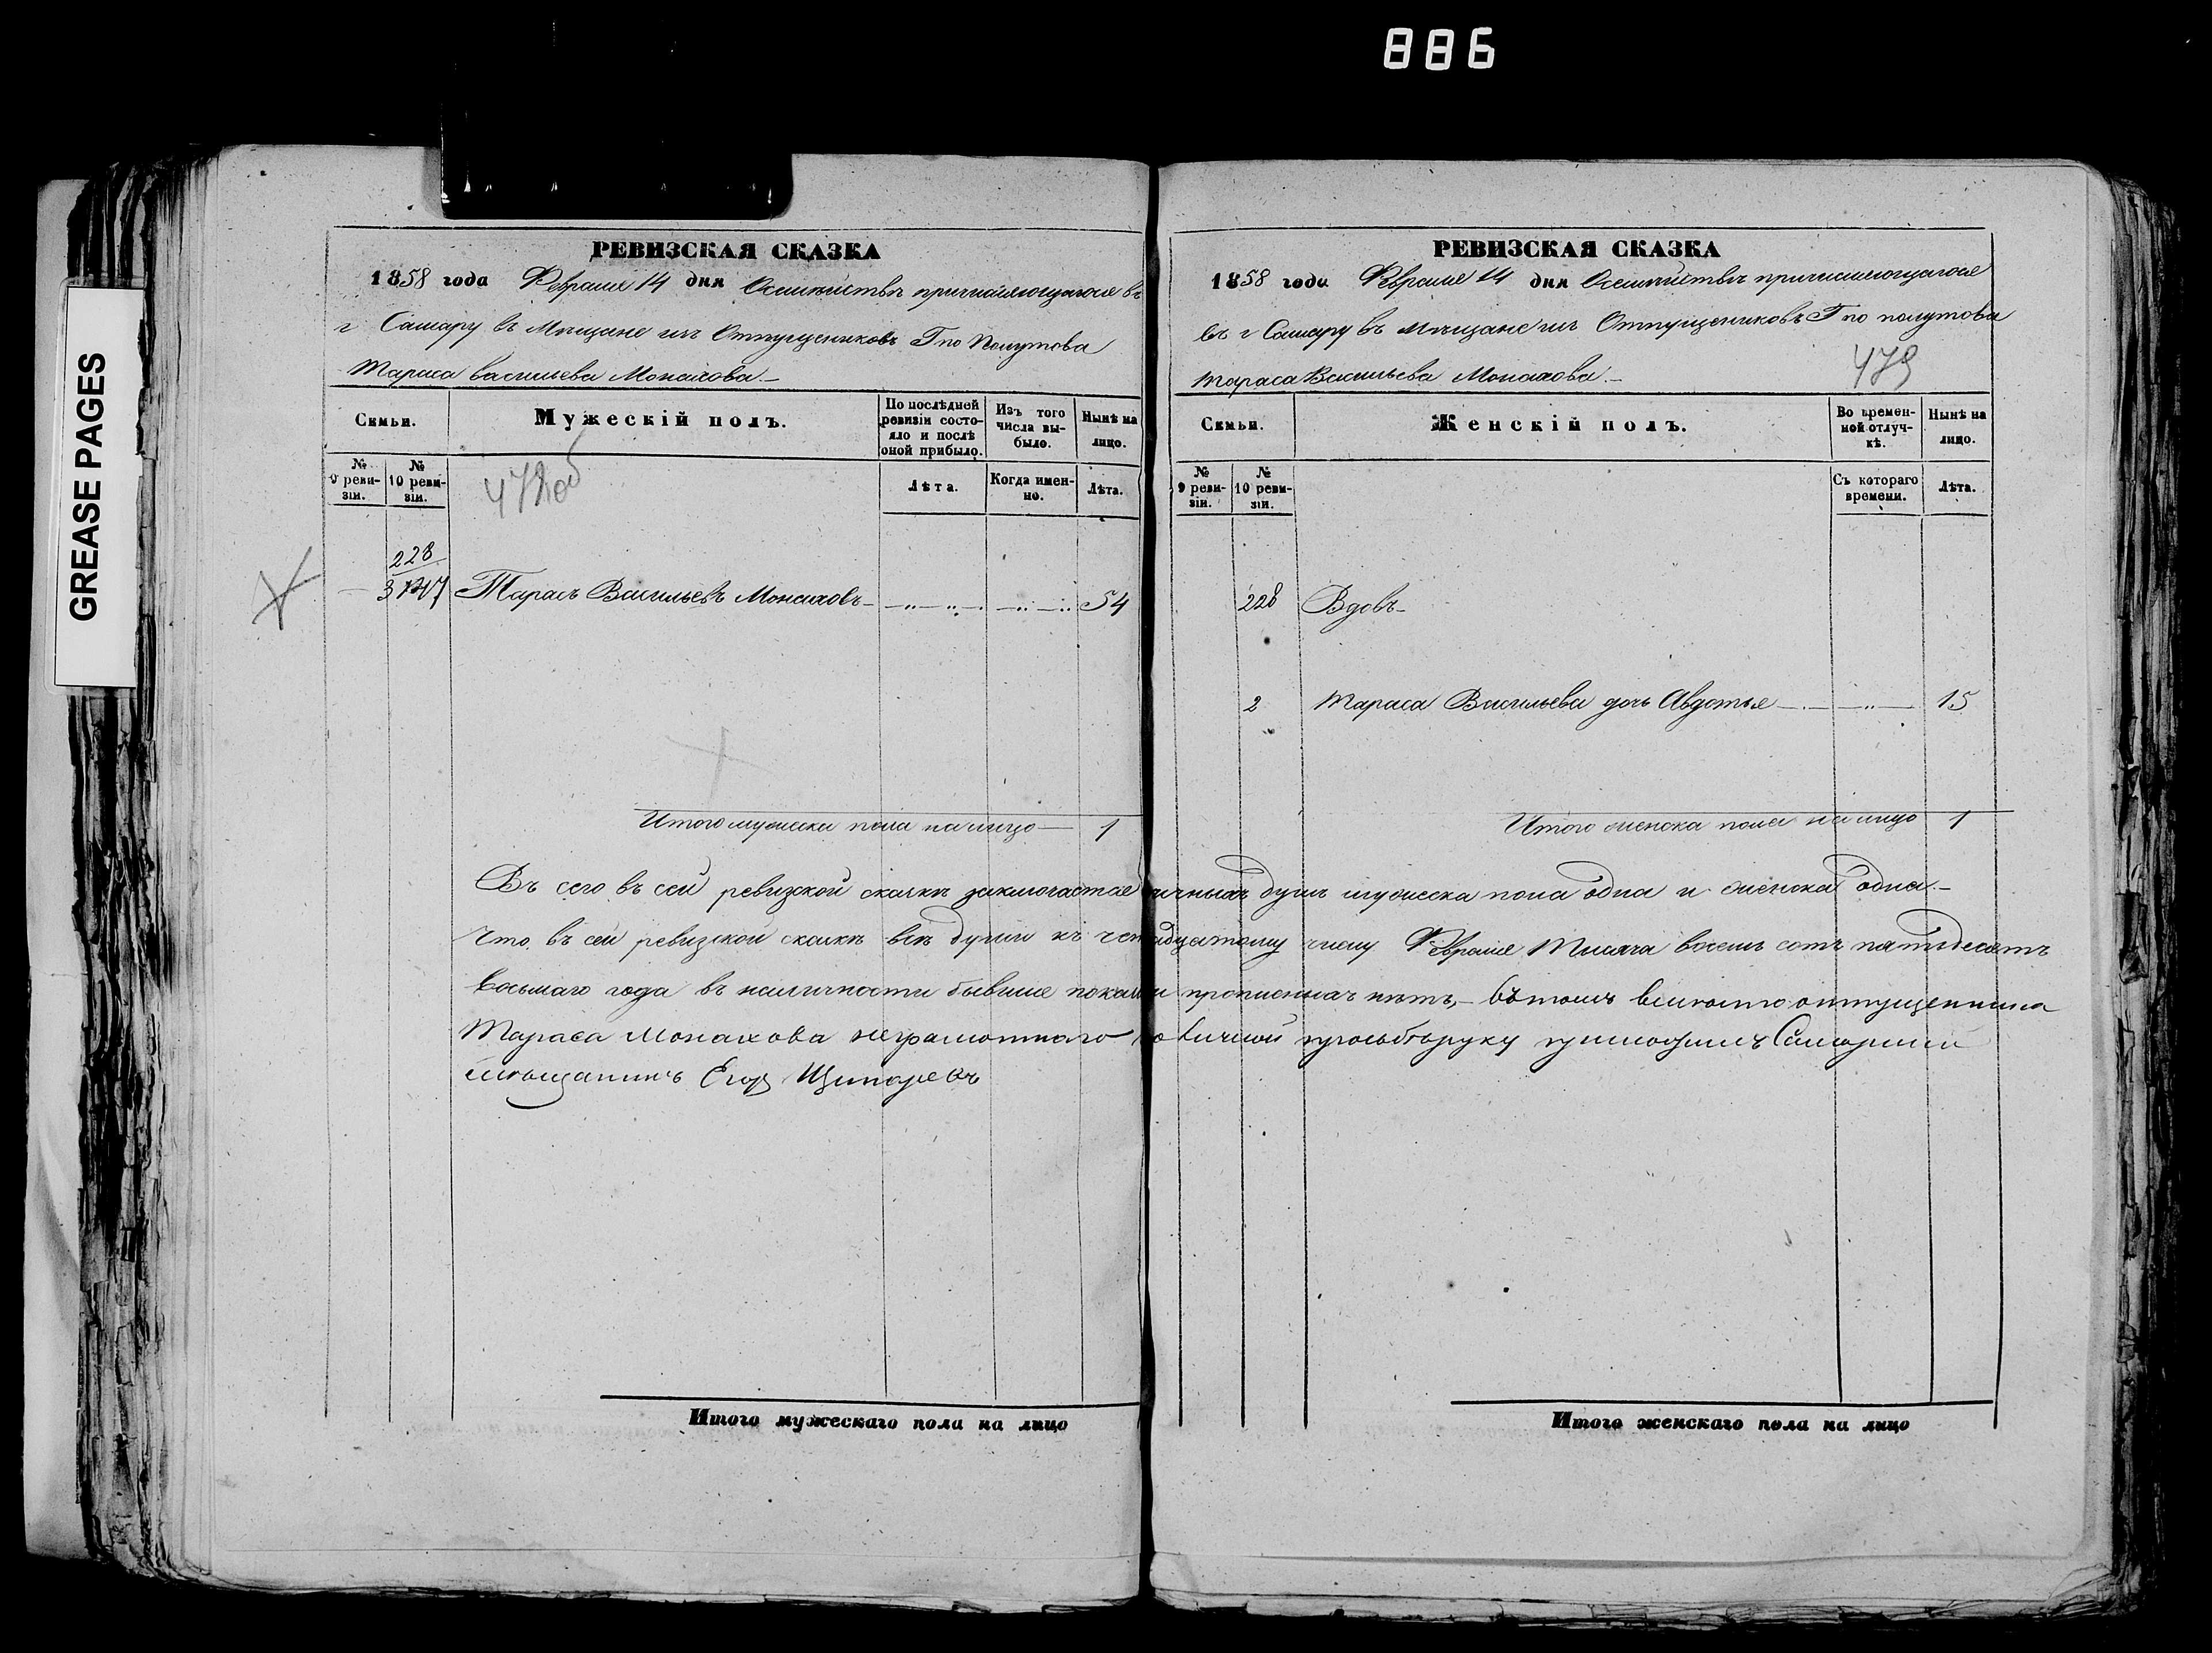 886
GREASE PAGES
РЕВИЗСКАЯ СКАЗКА
1858 года Февраля 14 дня О семействѣ причисляющагося въ
г Самару въ Мѣщане изъ Отпущениковъ Г по Полутова
Тараса Васильева Монахова
Семьи.
Мужескій полъ.
По послѣдней ревизіи состояло и послѣ оной прибыло.
Изъ того числа выбыло.
Нынѣ на лицо.
№ 9 ревизіи.
№ 10 ревизіи.
478об
Лѣта.
Когда именно.
Лѣта.
228
Тарасъ Васильевъ Монаховъ 54
Итого мужеска пола на лицо 1
РЕВИЗСКАЯ СКАЗКА
1858 года Февраля 14 дня О семействѣ причисляющагося
въ г Самару въ Мѣщане изъ Отпущениковъ Г по полутова
Тараса Васильева Монахова.
479
Семьи.
Женскій полъ.
Во временной отлучкѣ.
Нынѣ на лицо.
№ 9 ревизіи.
№ 10 ревизіи.
Съ котораго времени.
Лѣта.
228 Вдовъ
2 Тараса Васильева дочь Авдотья 15
Итого женска пола на лицо 1
Въ сего въ сей ревизской сказкѣ заключается личныхъ душъ мужеска пола одна и женска одна
Что въ сей ревизской сказкѣ всѣ души къ четырнадцатому числу Февраля Тысяча восемь сотъ пятьдесятъ
восьмаго года въ наличности бывшие показаны и прописныхъ нѣтъ, въ томъ вмѣсто отпущенника
Тараса Монахова неграмотнаго по личной прозьбѣ руку приложилъ Самарский
мѣщанинъ Егор
Итого мужескаго пола на лицо
Итого женскаго пола на лицо